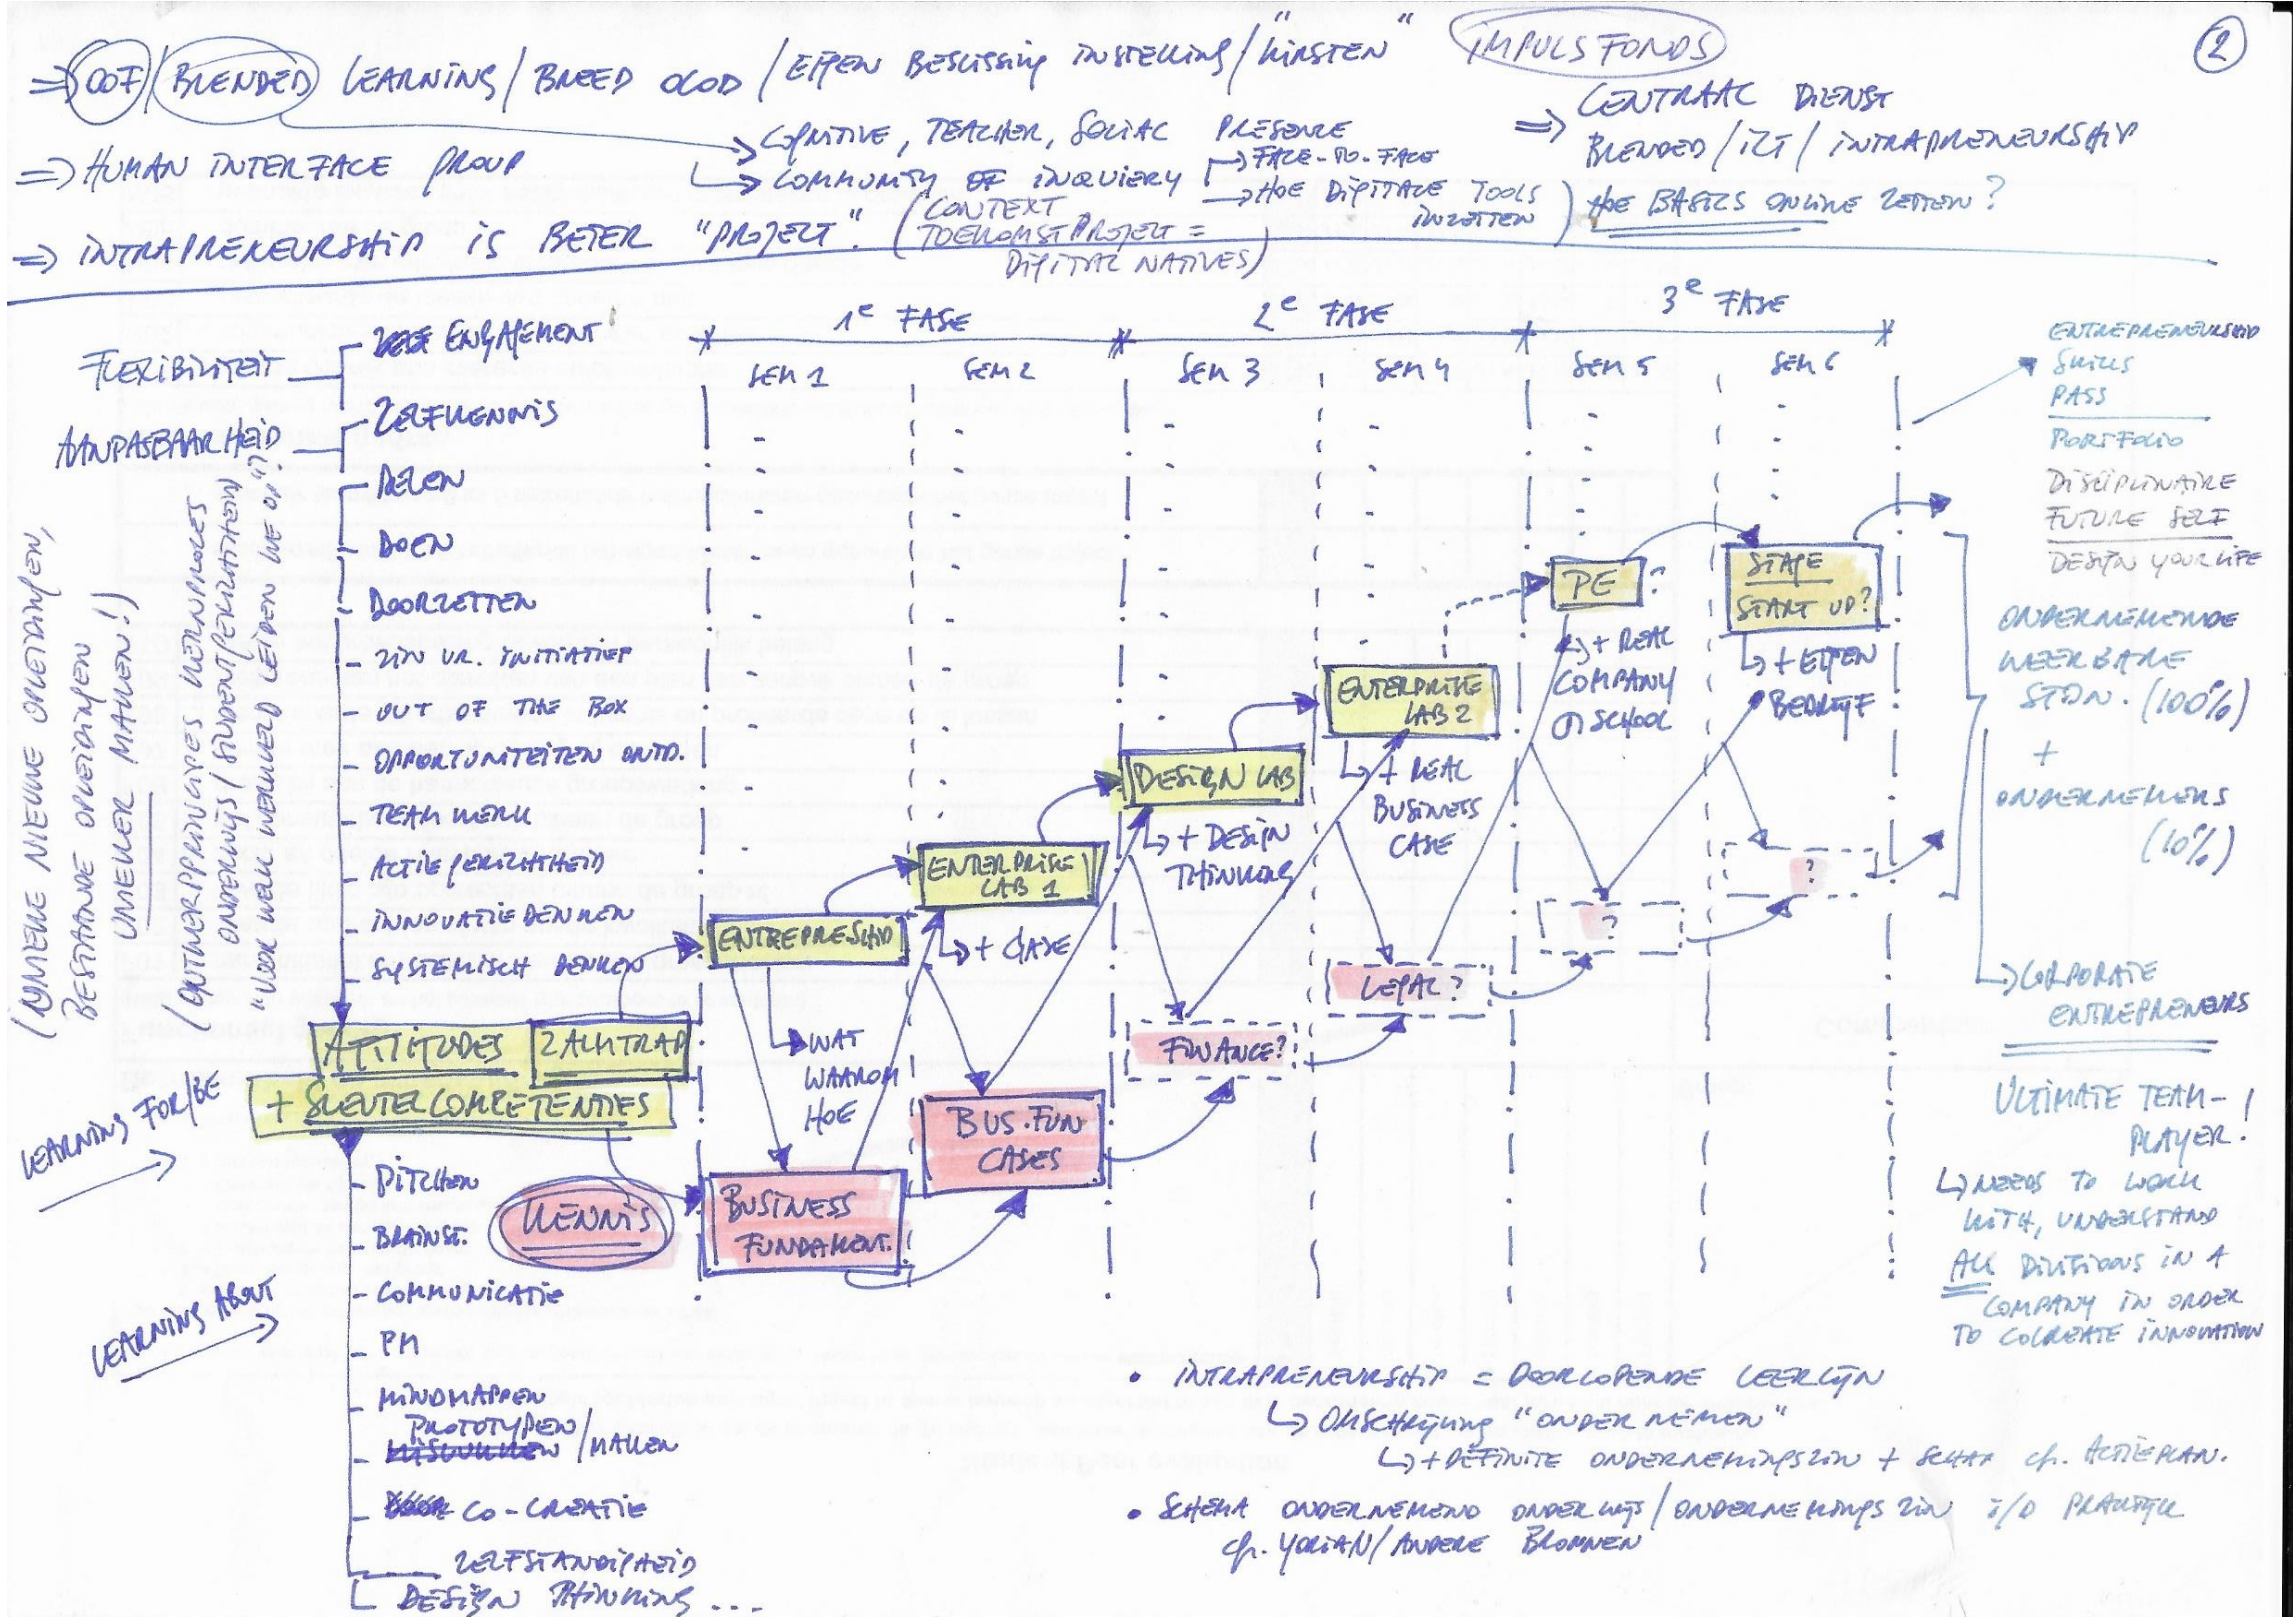 2
⇒ OOF / BLENDED LEARNING / BREED OLOD / EIGEN BESLISSING INSTELLING / "KIRSTEN" IMPULSFONDS
⇒ CENTRAAL DIENST
BLENDED / ICT / INTRAPRENEURSHIP
HOE BASICS ONLINE ZETTEN?
→ COGNITIVE, TEACHER, SOCIAL PRESENCE
⇒ HUMAN INTERFACE GROUP
→ COMMUNITY OF INQUIERY
→ FACE-TO-FACE
→ HOE DIGITALE TOOLS
INZETTEN
⇒ INTRAPRENEURSHIP IS BETER "PROJECT". (CONTEXT
TOEKOMSTPROJECT =
DIGITAL NATIVES)
1e FASE
2e FASE
3e FASE
SEM 1
SEM 2
SEM 3
SEM 4
SEM 5
SEM 6
FLEXIBILITEIT
AANPASBAARHEID
ENGAGEMENT
ZELFKENNIS
DELEN
DOEN
DOORZETTEN
- ZIN VR. INITIATIEF
- OUT OF THE BOX
- OPPORTUNITEITEN ONTD.
- TEAMWERK
- ACTIEGERICHTHEID
- INNOVATIEDENKEN
- SYSTEMISCH DENKEN
(GEEN NIEUWE OPLEIDINGEN,
BESTAANDE OPLEIDINGEN
UNIEKER MAKEN!)
(ONTWERPPRINCIPES KERNPROCES
ONDERWIJS / STUDENTGERICHTHEID)
"VOOR WELK WERKVELD LEIDEN WE OP"?
ATTITUDES
ZALMTRAP
+ SLEUTELCOMPETENTIES
LEARNING FOR/BE
LEARNING ABOUT
- PITCHEN
- BRAINST.
- COMMUNICATIE
- PM
- MINDMAPPEN
- PROTOTYPEN / MAKEN
- CO-CREATIE
ZELFSTANDIGHEID
DESIGN THINKING ...
KENNIS
ENTREPRESHIP
WAT
WAAROM
HOE
BUSINESS
FUNDAMENT.
ENTERPRISE
LAB 1
+ CASE
BUS. FUN
CASES
DESIGN LAB
+ DESIGN
THINKING
FINANCE?
ENTERPRISE
LAB 2
+ REAL
BUSINESS
CASE
LEGAL?
PE ?
+ REAL
COMPANY
@ SCHOOL
?
STAGE
START UP?
+ EIGEN
BEDRIJF
?
ENTREPRENEURSHIP
SKILLS
PASS
PORTFOLIO
DISCIPLINAIRE
FUTURE SELF
DESIGN YOUR LIFE
ONDERNEMENDE
WEERBARE
STDN. (100%)
+
ONDERNEMERS
(10%)
CORPORATE
ENTREPRENEURS
ULTIMATE TEAM-
PLAYER!
NEEDS TO WORK
WITH, UNDERSTAND
ALL DIVISIONS IN A
COMPANY IN ORDER
TO COCREATE INNOVATION
• INTRAPRENEURSHIP = DOORLOPENDE LEERLIJN
→ OMSCHRIJVING "ONDERNEMEN"
→ + DEFINITE ONDERNEMINGSZIN + SCHAP cfr. ACTIEPLAN.
• SCHEMA ONDERNEMEND ONDERWIJS / ONDERNEMINGSZIN I/D PRAKTIJK
cfr. YORIAN / ANDERE BRONNEN